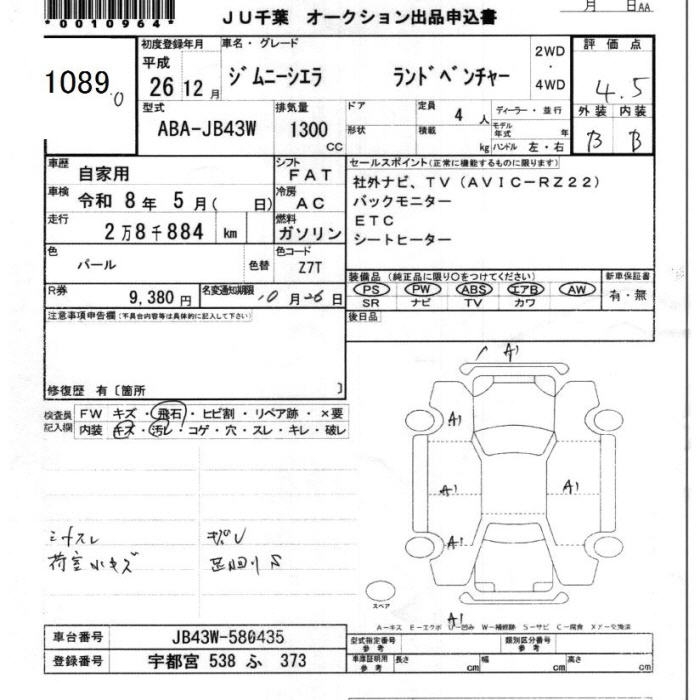 *00010964*
月 日AA
JU千葉 オークション出品申込書
1089
0
初度登録年月 車名・グレード 2WD ・ 4WD 評価点
平成 26 12月 ジムニーシエラ ランドベンチャー 4.5
型式 排気量 ドア 定員 4人 ディーラー・並行 外装 内装
ABA-JB43W 1300 CC 形状 積載 kg モデル年式 年 ハンドル 左・右 B B
車歴 自家用 シフト FAT セールスポイント(正常に機能するものに限ります)
車検 令和 8年 5月( 日) 冷房 AC 社外ナビ、TV(AVIC-RZ22)
バックモニター
走行 2万8千884 km 燃料 ガソリン ETC
シートヒーター
色 パール 色替 色コード Z7T
装備品(純正品に限り○をつけてください) 新車保証書
PS PW ABS エアB AW 有・無
SR ナビ TV カワ
R券 9,380円 名変通知期限 10月26日
注意事項申告欄(不具合内容等は具体的に記入して下さい) 後日品
修復歴 有〔箇所 〕
検査員記入欄 FW キズ・飛石・ヒビ割・リペア跡・×要
内装 キズ・汚レ・コゲ・穴・スレ・キレ・破レ
A1
A1
A1 A1
A1
A1
スペア
荷室小キズ 足回りS
A-キズ E-エクボ U-凹み W-補修跡 S-サビ C-腐食 X,-交換済
車台番号 JB43W-580435 型式指定番号 参考 類別区分番号 参考
登録番号 宇都宮 538 ふ 373 車庫証明用 参考 長さ cm 幅 cm 高さ cm